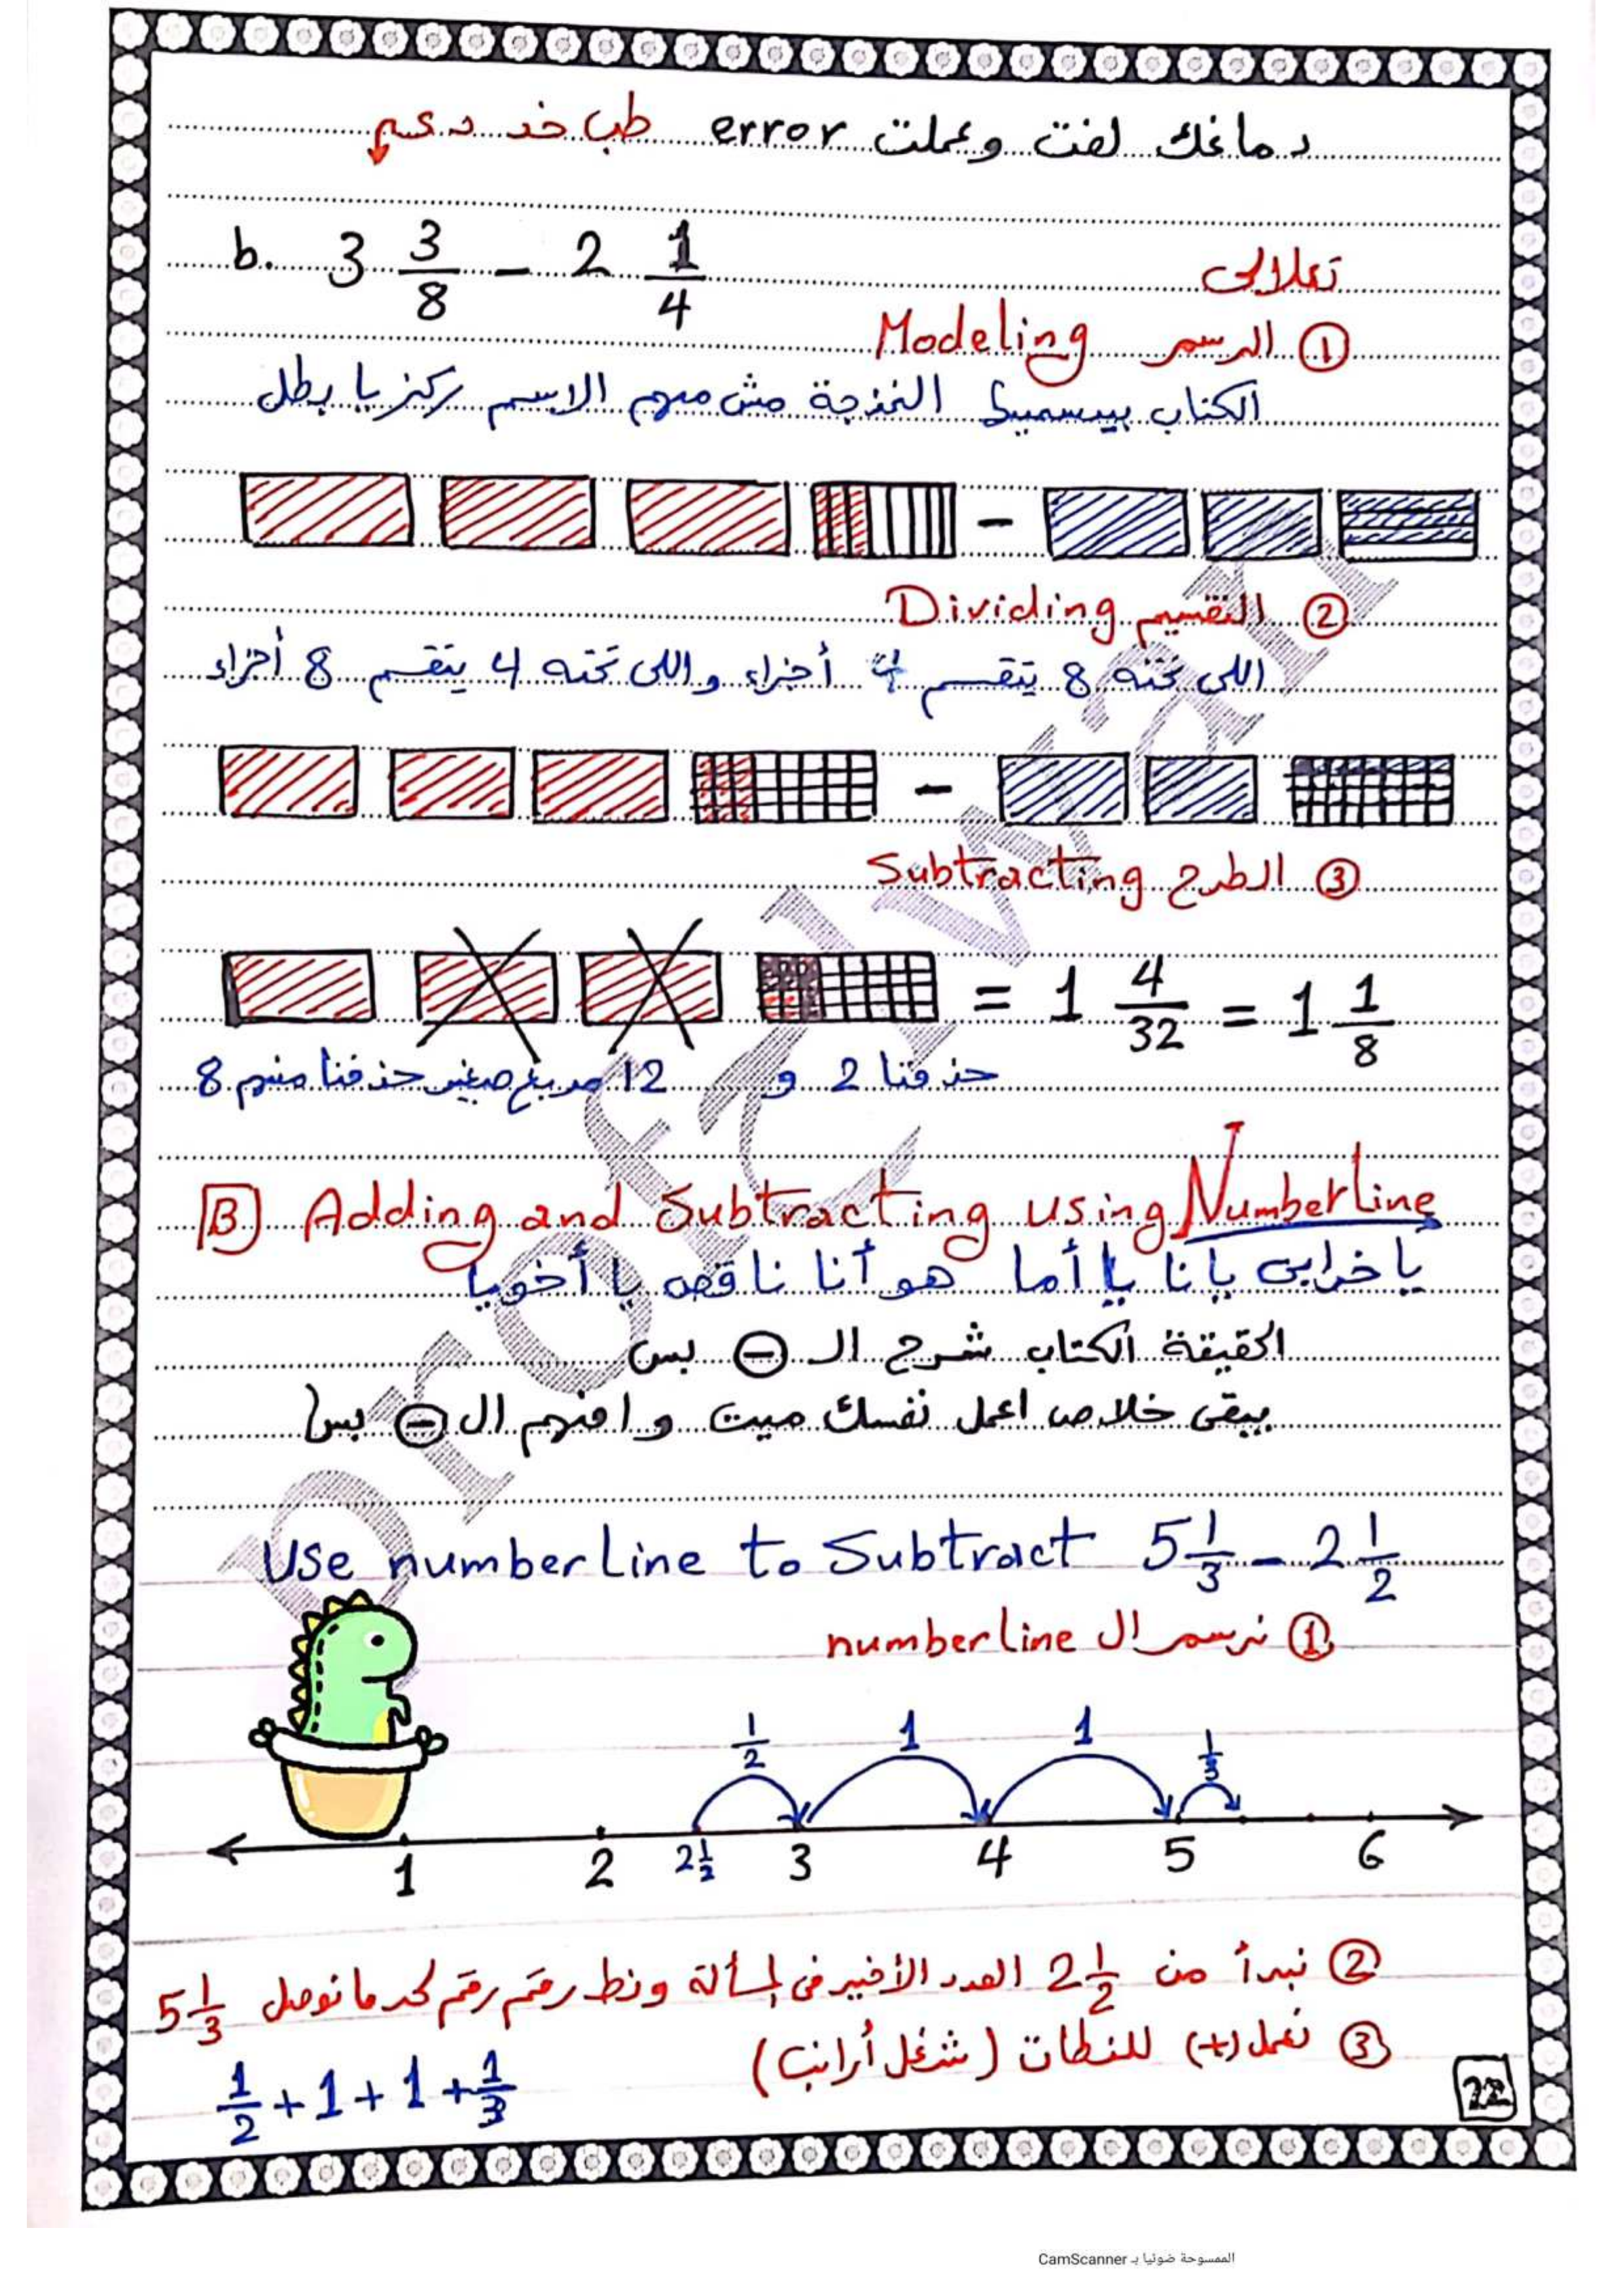 دماغك لفت وعملت error طب خد دعم
b. 3 3/8 - 2 1/4
تعلالى
① الرسم Modeling
الكتاب بيسميها النمذجة مش مهم الاسم ركز يا بطل
-
② التقسيم Dividing
اللى تحته 8 يتقسم 4 أجزاء واللى تحته 4 يتقسم 8 أجزاء
-
③ الطرح Subtracting
= 1 4/32 = 1 1/8
حذفنا 2 و 12 مربع صغير حذفنا منهم 8
B Adding and Subtracting using Numberline
يا خرابى يا نا يا أما هو أنا ناقص يا أخويا
الحقيقة الكتاب شرح ال ⊖ بس
يبقى خلاص اعمل نفسك ميت وافهم ال ⊖ بس
Use numberline to Subtract 5 1/3 - 2 1/2
① نرسم ال numberline
1/2 1 1 1/3
1 2 2 1/2 3 4 5 6
② نبدأ من 2 1/2 العدد الأخير فى المسألة ونط رقم رقم لحد ما نوصل 5 1/3
③ نعمل (+) للنطات (شغل أرانب)
1/2 + 1 + 1 + 1/3
22
الممسوحة ضوئيا بـ CamScanner